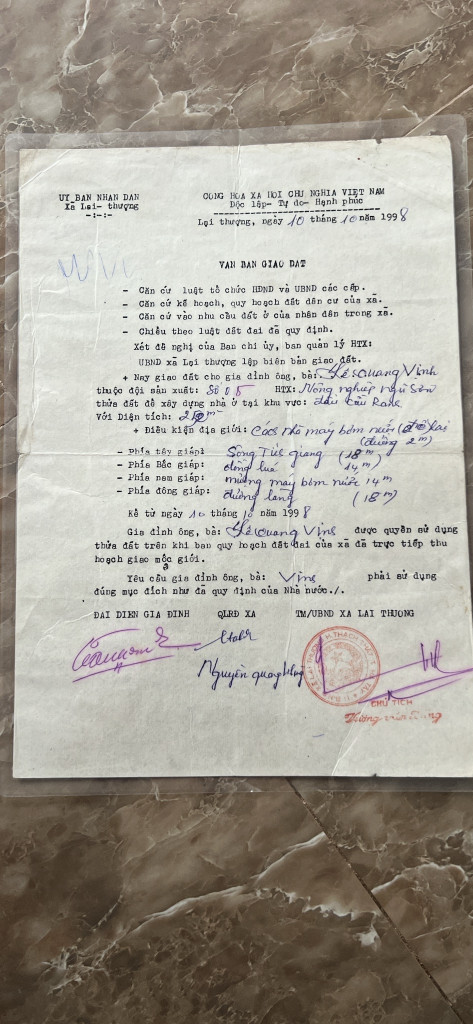 UY BAN NHAN DAN
Xã Lại- thượng
-:-:-
CONG HOA XA HOI CHU NGHIA VIET NAM
Dôc lập- Tự do- Hạnh phúc
Lại thượng, ngày 10 tháng 10 năm 1998
VAN BAN GIAO DAT
- Căn cứ luật tổ chức HDND và UBND các cấp.
- Căn cứ kế hoạch, quy hoạch đất dân cư của xã.
- Căn cứ vào nhu cầu đất ở của nhân dân trong xã.
- Chiếu theo luật đất đai đã quy định.
Xét đề nghị của Ban chi ủy, ban quản lý HTX:
UBND xã Lại thượng lập biên bản giao đất.
+ Nay giao đất cho gia đình ông, bà: Lê Quang Vinh
thuộc đội sản xuất: Số 05 HTX: Nông nghiệp Ngũ Sơn
thửa đất để xây dựng nhà ở tại khu vực: đầu Cầu
Với Diện tích: m
+ Điều kiện địa giới: Cách nhà máy bơm nước
(đường 2m)
- Phía tây giáp: Sông Tích giang (18m)
- Phía Bắc giáp: đồng lúa 14m
- Phía nam giáp: mương máy bơm nước 14m
- Phía đông giáp: đường làng (18m)
Kể từ ngày 10 tháng 10 năm 1998
Gia đình ông, bà: Lê Quang Vinh được quyền sử dụng
thửa đất trên khi ban quy hoạch đất đai của xã đã trực tiếp thu
hoạch giao mốc giới.
Yêu cầu gia đình ông, bà: Vinh phải sử dụng
đúng mục đích như đã quy định của Nhà nước./.
ĐAI DIEN GIA ĐINH QLRĐ XA TM/UBND XA LAI THUONG
Nguyễn quang
CHỦ TỊCH